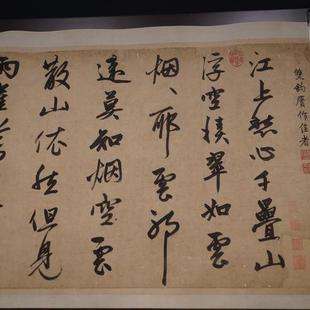 雙鉤贗作佳者
江上愁心千疊山
浮空積翠如雲
烟、耶雲耶
遠莫知烟空雲
散山依然但見
兩崖蒼